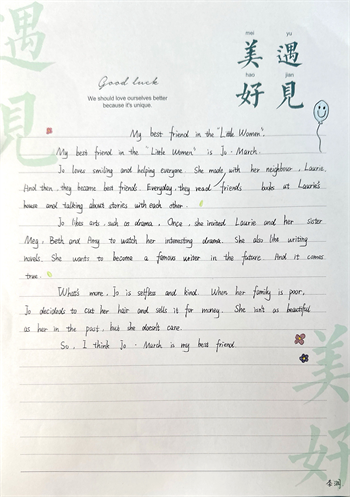 遇見
mei yu
美 遇
hao jian
好 見
Good luck
We should love ourselves better
because it's unique.
My best friend in the "Little Women".
My best friend in the "Little Women" is Jo·March.
Jo loves smiling and helping everyone. She made with her neighbour, Laurie.
And then, they became best friends. Everyday, they read friends at Laurie's
house and talking about stories with each other.
Jo likes arts, such as drama. Once, she invited Laurie and her sister
Meg, Beth and Amy to watch her interesting drama. She also like writing
novels. She wants to become a famous writer in the future. And it comes
true.
What's more, Jo is selfless and kind. When her family is poor,
Jo decideds to cut her hair and sells it for money. She isn't as beautiful
as her in the past, but she doesn't care.
So, I think Jo·March is my best friend.
美好